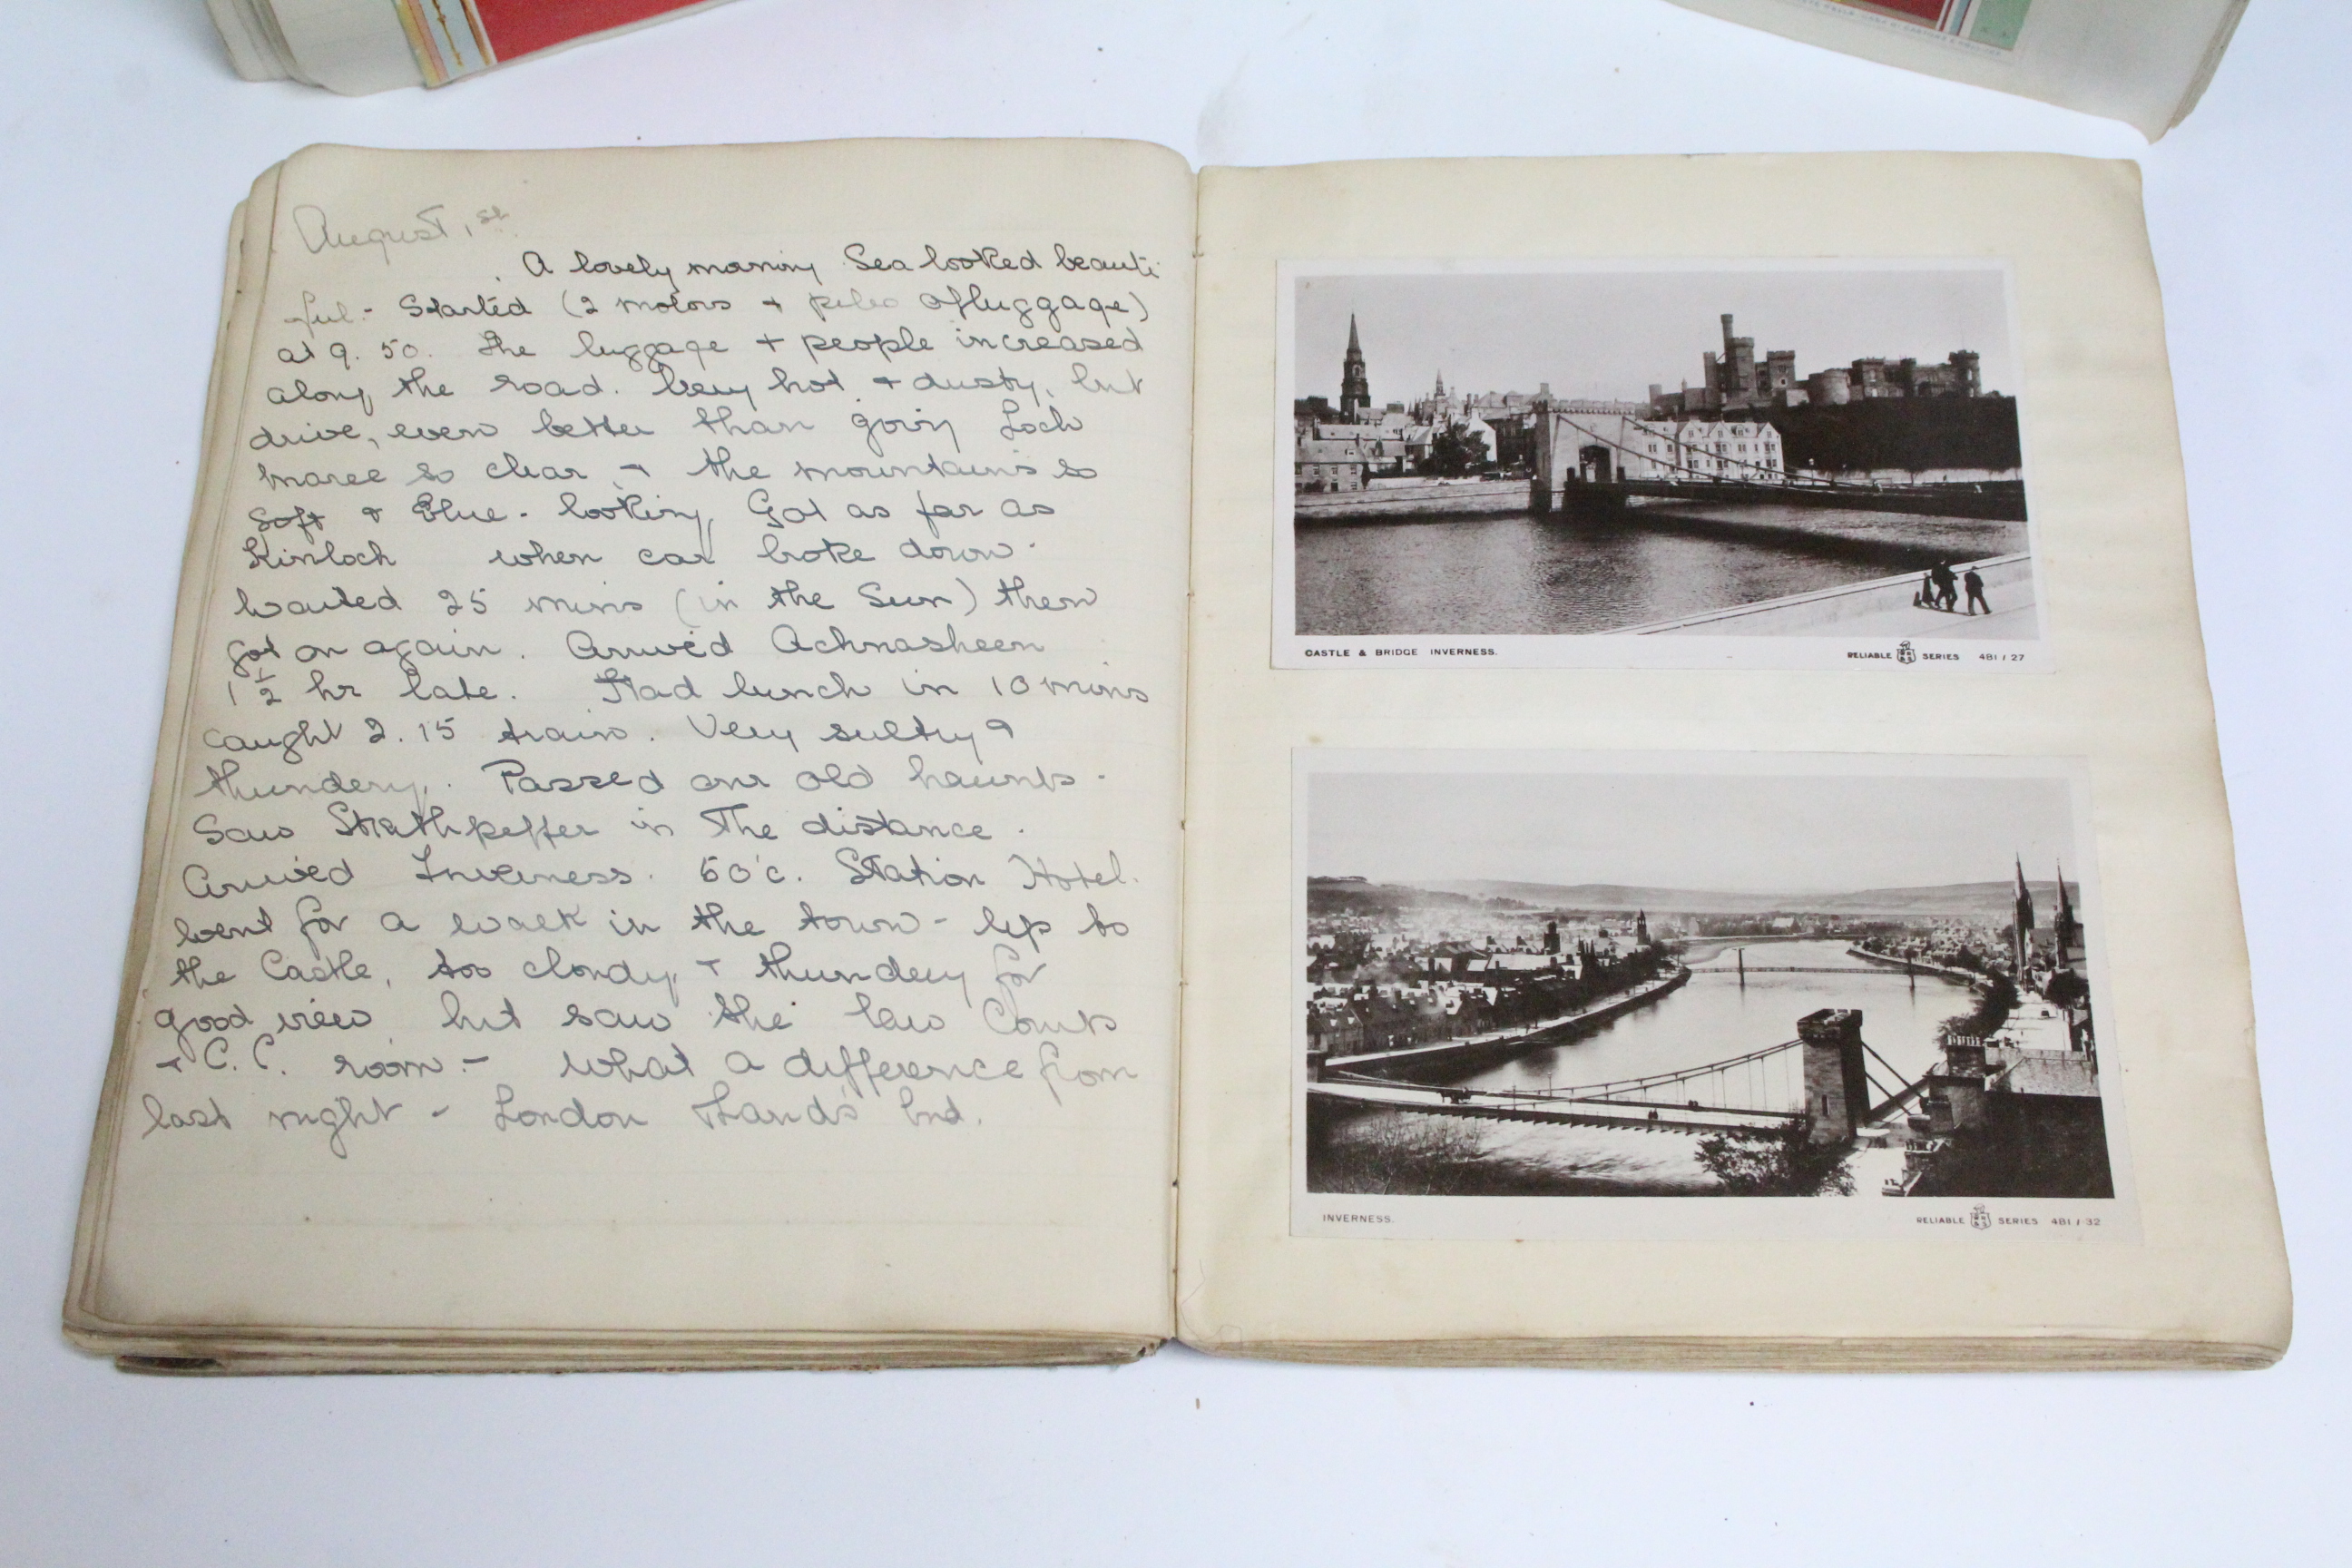 August 1st.
A lovely morning Sea looked beauti
ful - Started (2 motors + piles of luggage)
at 9.50. The luggage + people increased
along the road. Very hot + dusty, but
drive, even better than going Loch
Maree so clear + the mountains so
soft + Blue - looking, Got as far as
Kinloch when car broke down -
waited 25 mins (in the Sun) then
got on again. Arrived Achnasheen
1 1/2 hr late. Had lunch in 10 mins
caught 2.15 train. Very sultry +
thundery. Passed our old haunts -
Saw Strathpeffer in The distance.
Arrived Inverness. Station Hotel.
went for a walk in the town - up to
the Castle, too cloudy + thundery for
good view but saw the law Courts
+ C.C. room - what a difference from
last night - London Lands End.
CASTLE & BRIDGE INVERNESS.
RELIABLE SERIES 481 / 27
INVERNESS.
RELIABLE SERIES 481 / 32